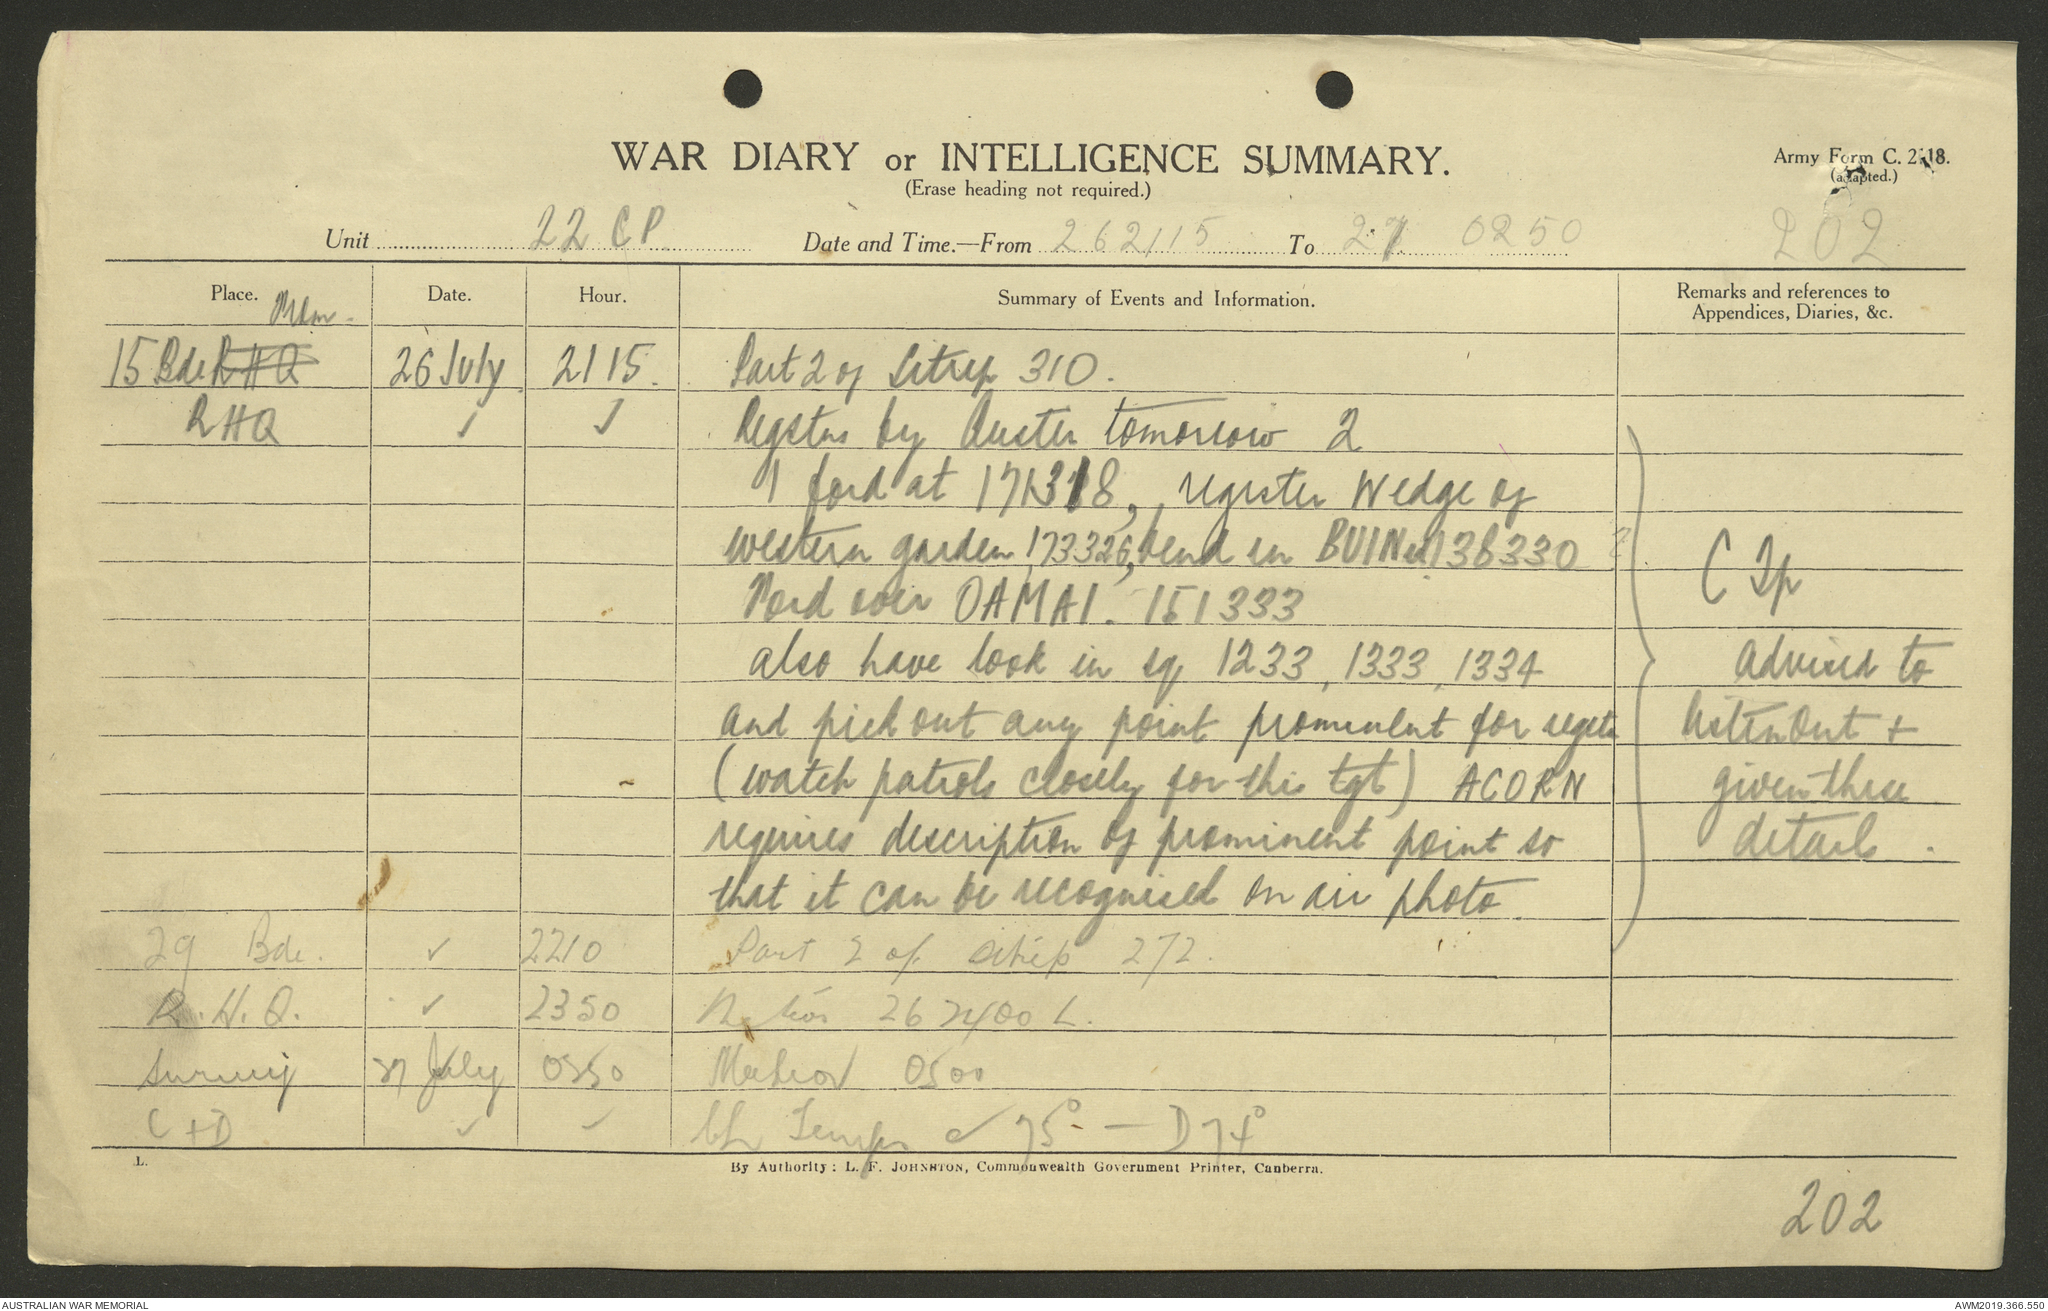 WAR DIARY or INTELLIGENCE SUMMARY.
(Erase heading not required.)
Army Form C. 2118.
(adapted.)
202
Unit 22 CP. Date and Time.—From 262115 To 27 0250
Place. Date. Hour. Summary of Events and Information. Remarks and references to Appendices, Diaries, &c.
15 Bde RHQ 26 July 2115. Part 2 of Sitrep 310.
RHQ ✓ ✓ Regstns by Auster tomorrow 2
1 ford at 171318, register Wedge of
western garden 173326, bend in BUIN rd 138330
Ford over OAMAI. 151333
also have look in sq 1233, 1333, 1334
and pick out any point prominent for regstn
(watch patrols closely for this tgt) ACORN
requires description of prominent point so
that it can be recognised on air photo.
C Tp
advised to
listen out +
given these
details.
29 Bde. ✓ 2210 Part 2 of sitrep 272.
R.H.Q. ✓ 2350 262400 L.
Survey 27 July 0250 Meteor 0500
C + D ✓ ✓ Ch Temps C 75° — D 74°
L.
By Authority: L. F. JOHNSTON, Commonwealth Government Printer, Canberra.
202
AUSTRALIAN WAR MEMORIAL
AWM2019.366.550